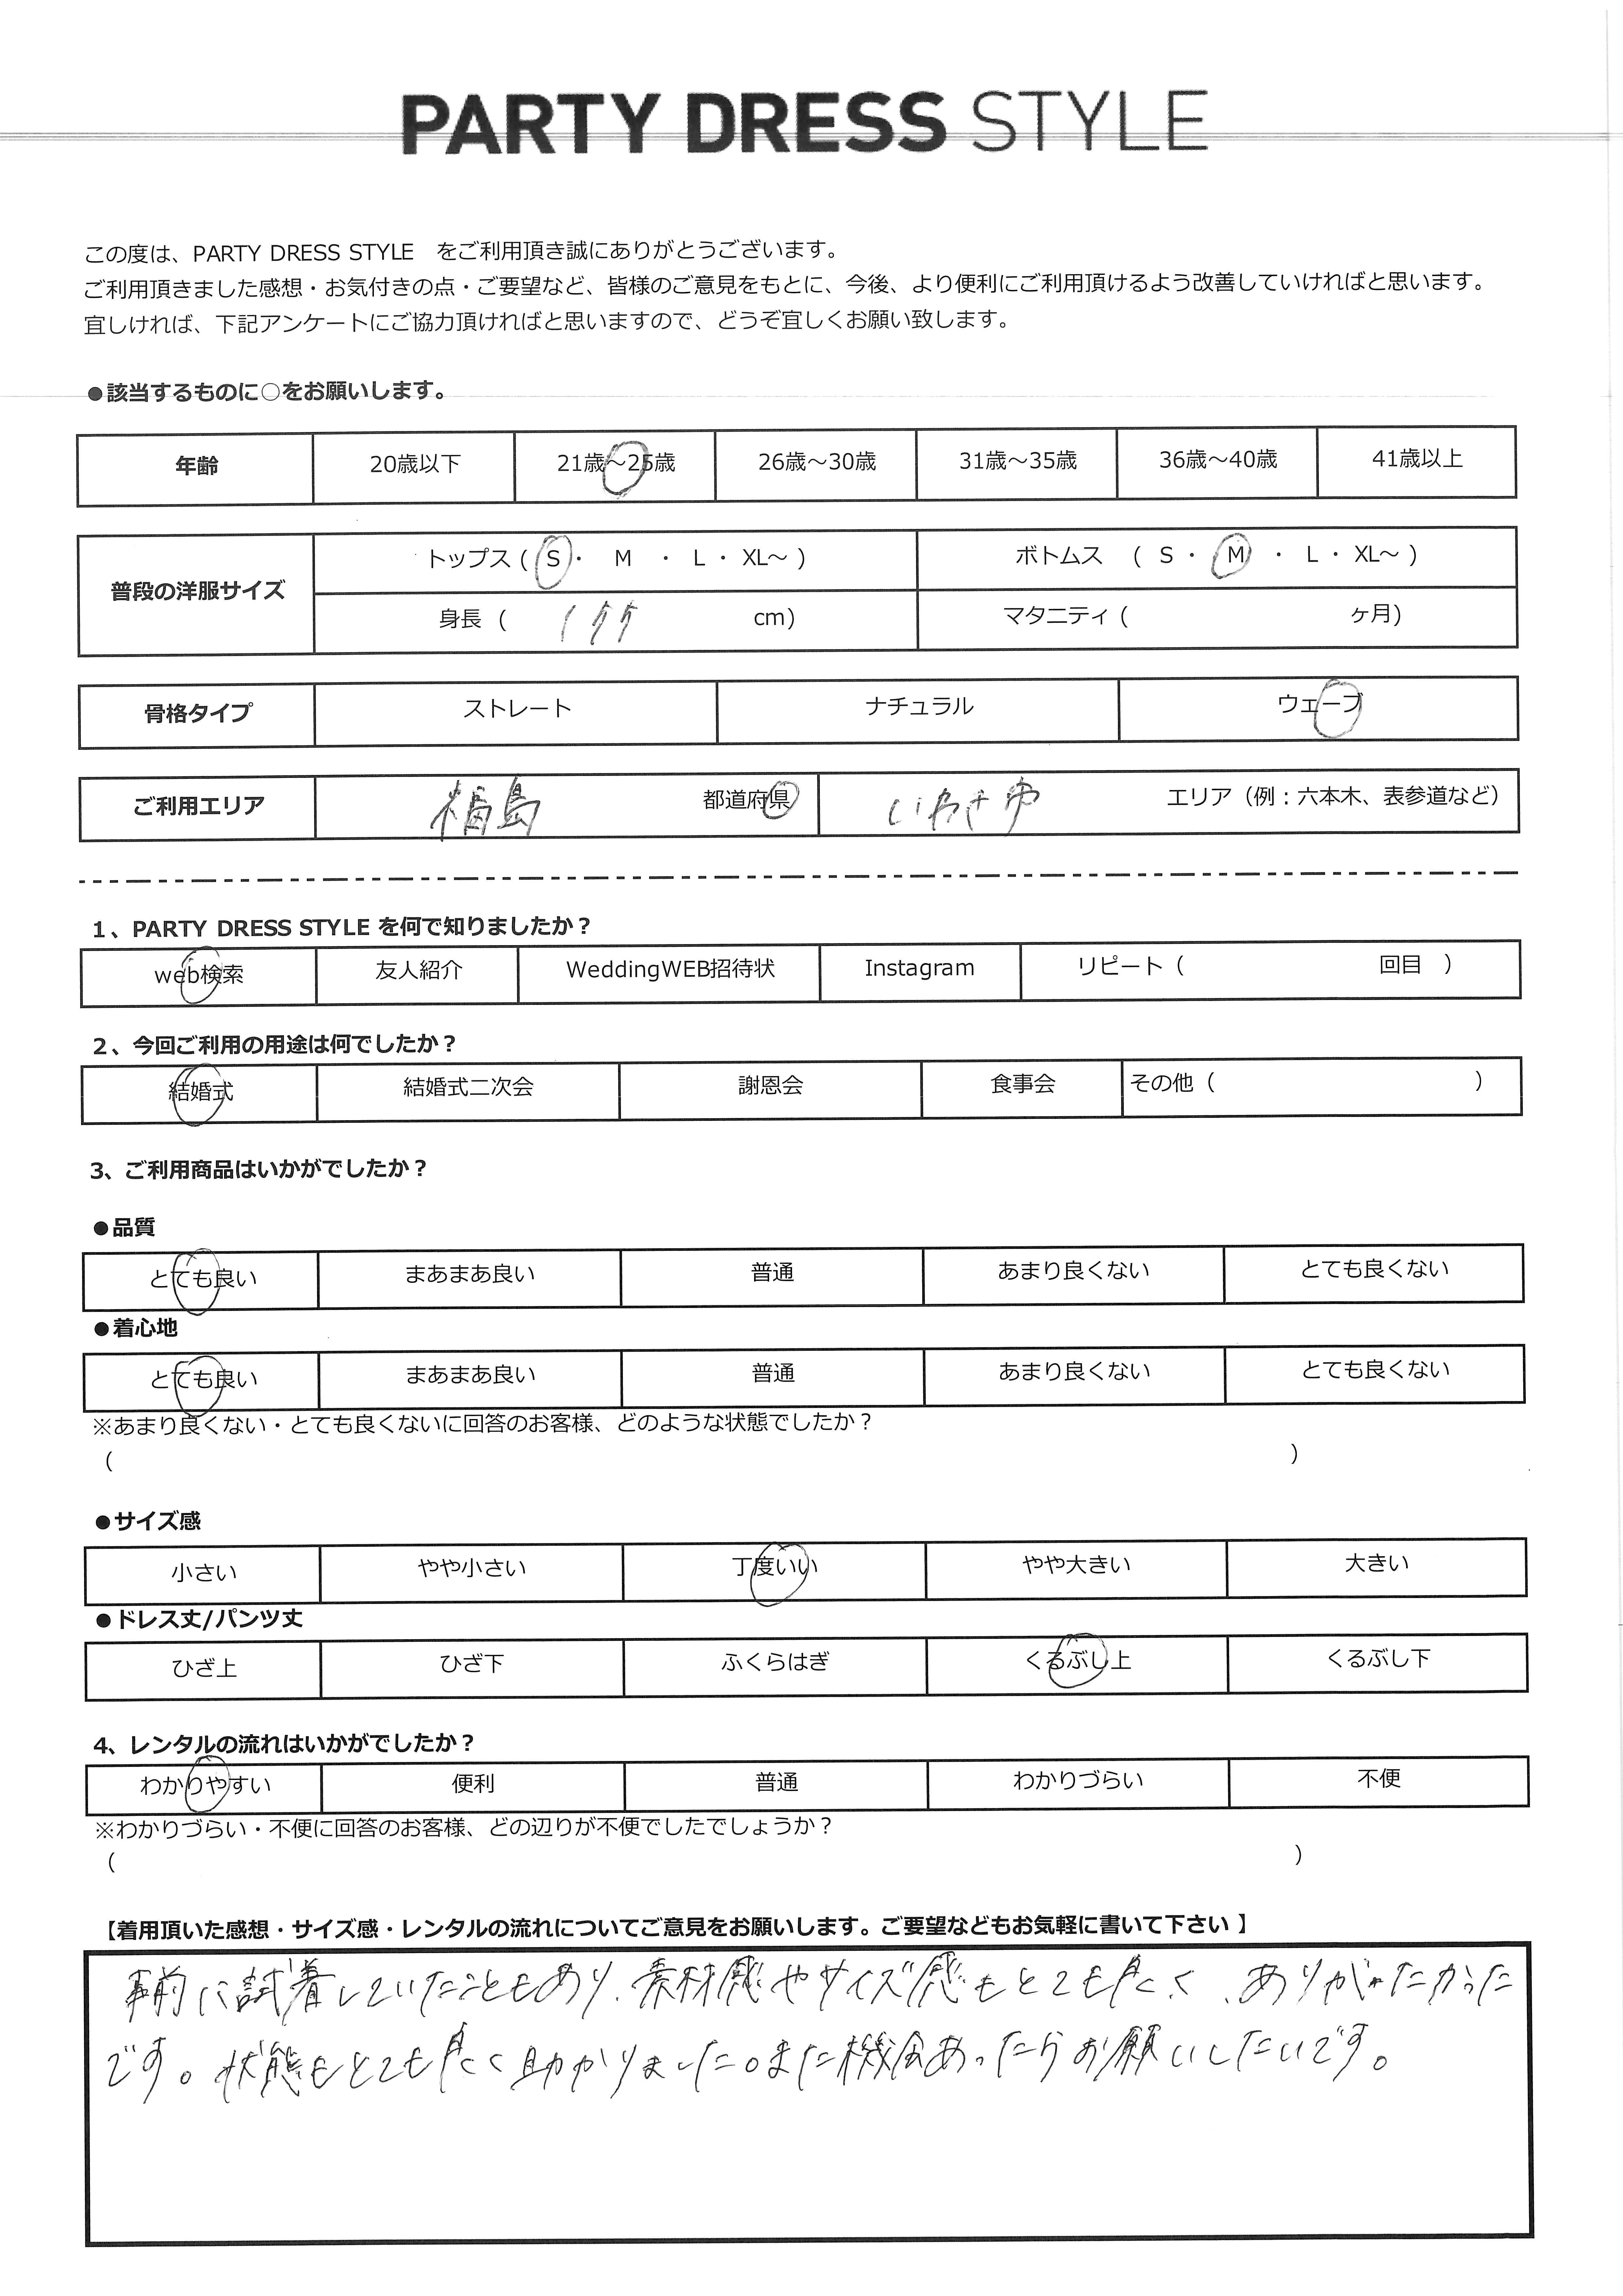 PARTY DRESS STYLE
この度は、PARTY DRESS STYLE　をご利用頂き誠にありがとうございます。
ご利用頂きました感想・お気付きの点・ご要望など、皆様のご意見をもとに、今後、より便利にご利用頂けるよう改善していければと思います。
宜しければ、下記アンケートにご協力頂ければと思いますので、どうぞ宜しくお願い致します。
●該当するものに○をお願いします。
年齢 20歳以下 21歳～25歳 26歳～30歳 31歳～35歳 36歳～40歳 41歳以上
普段の洋服サイズ
トップス ( S ・ M ・ L ・ XL～ ) ボトムス ( S ・ M ・ L ・ XL～ )
身長 ( 155 cm) マタニティ ( ヶ月)
骨格タイプ ストレート ナチュラル ウェーブ
ご利用エリア 福島 都道府県 いわき市 エリア（例：六本木、表参道など）
1、PARTY DRESS STYLE を何で知りましたか？
web検索 友人紹介 WeddingWEB招待状 Instagram リピート（ 回目 ）
2、今回ご利用の用途は何でしたか？
結婚式 結婚式二次会 謝恩会 食事会 その他（ ）
3、ご利用商品はいかがでしたか？
●品質
とても良い まあまあ良い 普通 あまり良くない とても良くない
●着心地
とても良い まあまあ良い 普通 あまり良くない とても良くない
※あまり良くない・とても良くないに回答のお客様、どのような状態でしたか？
（ ）
●サイズ感
小さい やや小さい 丁度いい やや大きい 大きい
●ドレス丈/パンツ丈
ひざ上 ひざ下 ふくらはぎ くるぶし上 くるぶし下
4、レンタルの流れはいかがでしたか？
わかりやすい 便利 普通 わかりづらい 不便
※わかりづらい・不便に回答のお客様、どの辺りが不便でしたでしょうか？
（ ）
【着用頂いた感想・サイズ感・レンタルの流れについてご意見をお願いします。ご要望などもお気軽に書いて下さい 】
事前に試着していたこともあり、素材感やサイズ感もとても良く、ありがたかった
です。状態もとても良く助かりました。また機会あったらお願いしたいです。